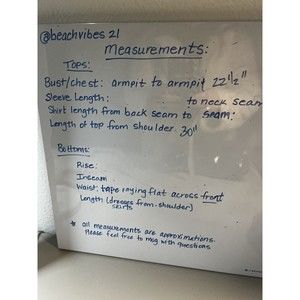 @beachvibes21
Measurements:
Tops:
Bust/chest: armpit to armpit 22 1/2"
Sleeve Length: to neck seam
Shirt length from back seam to seam:
Length of top from shoulder 30"
Bottoms:
Rise:
Inseam
Waist: tape laying flat across front
Length (dresses from shoulder)
skirts
* all measurements are approximations.
Please feel free to msg with questions